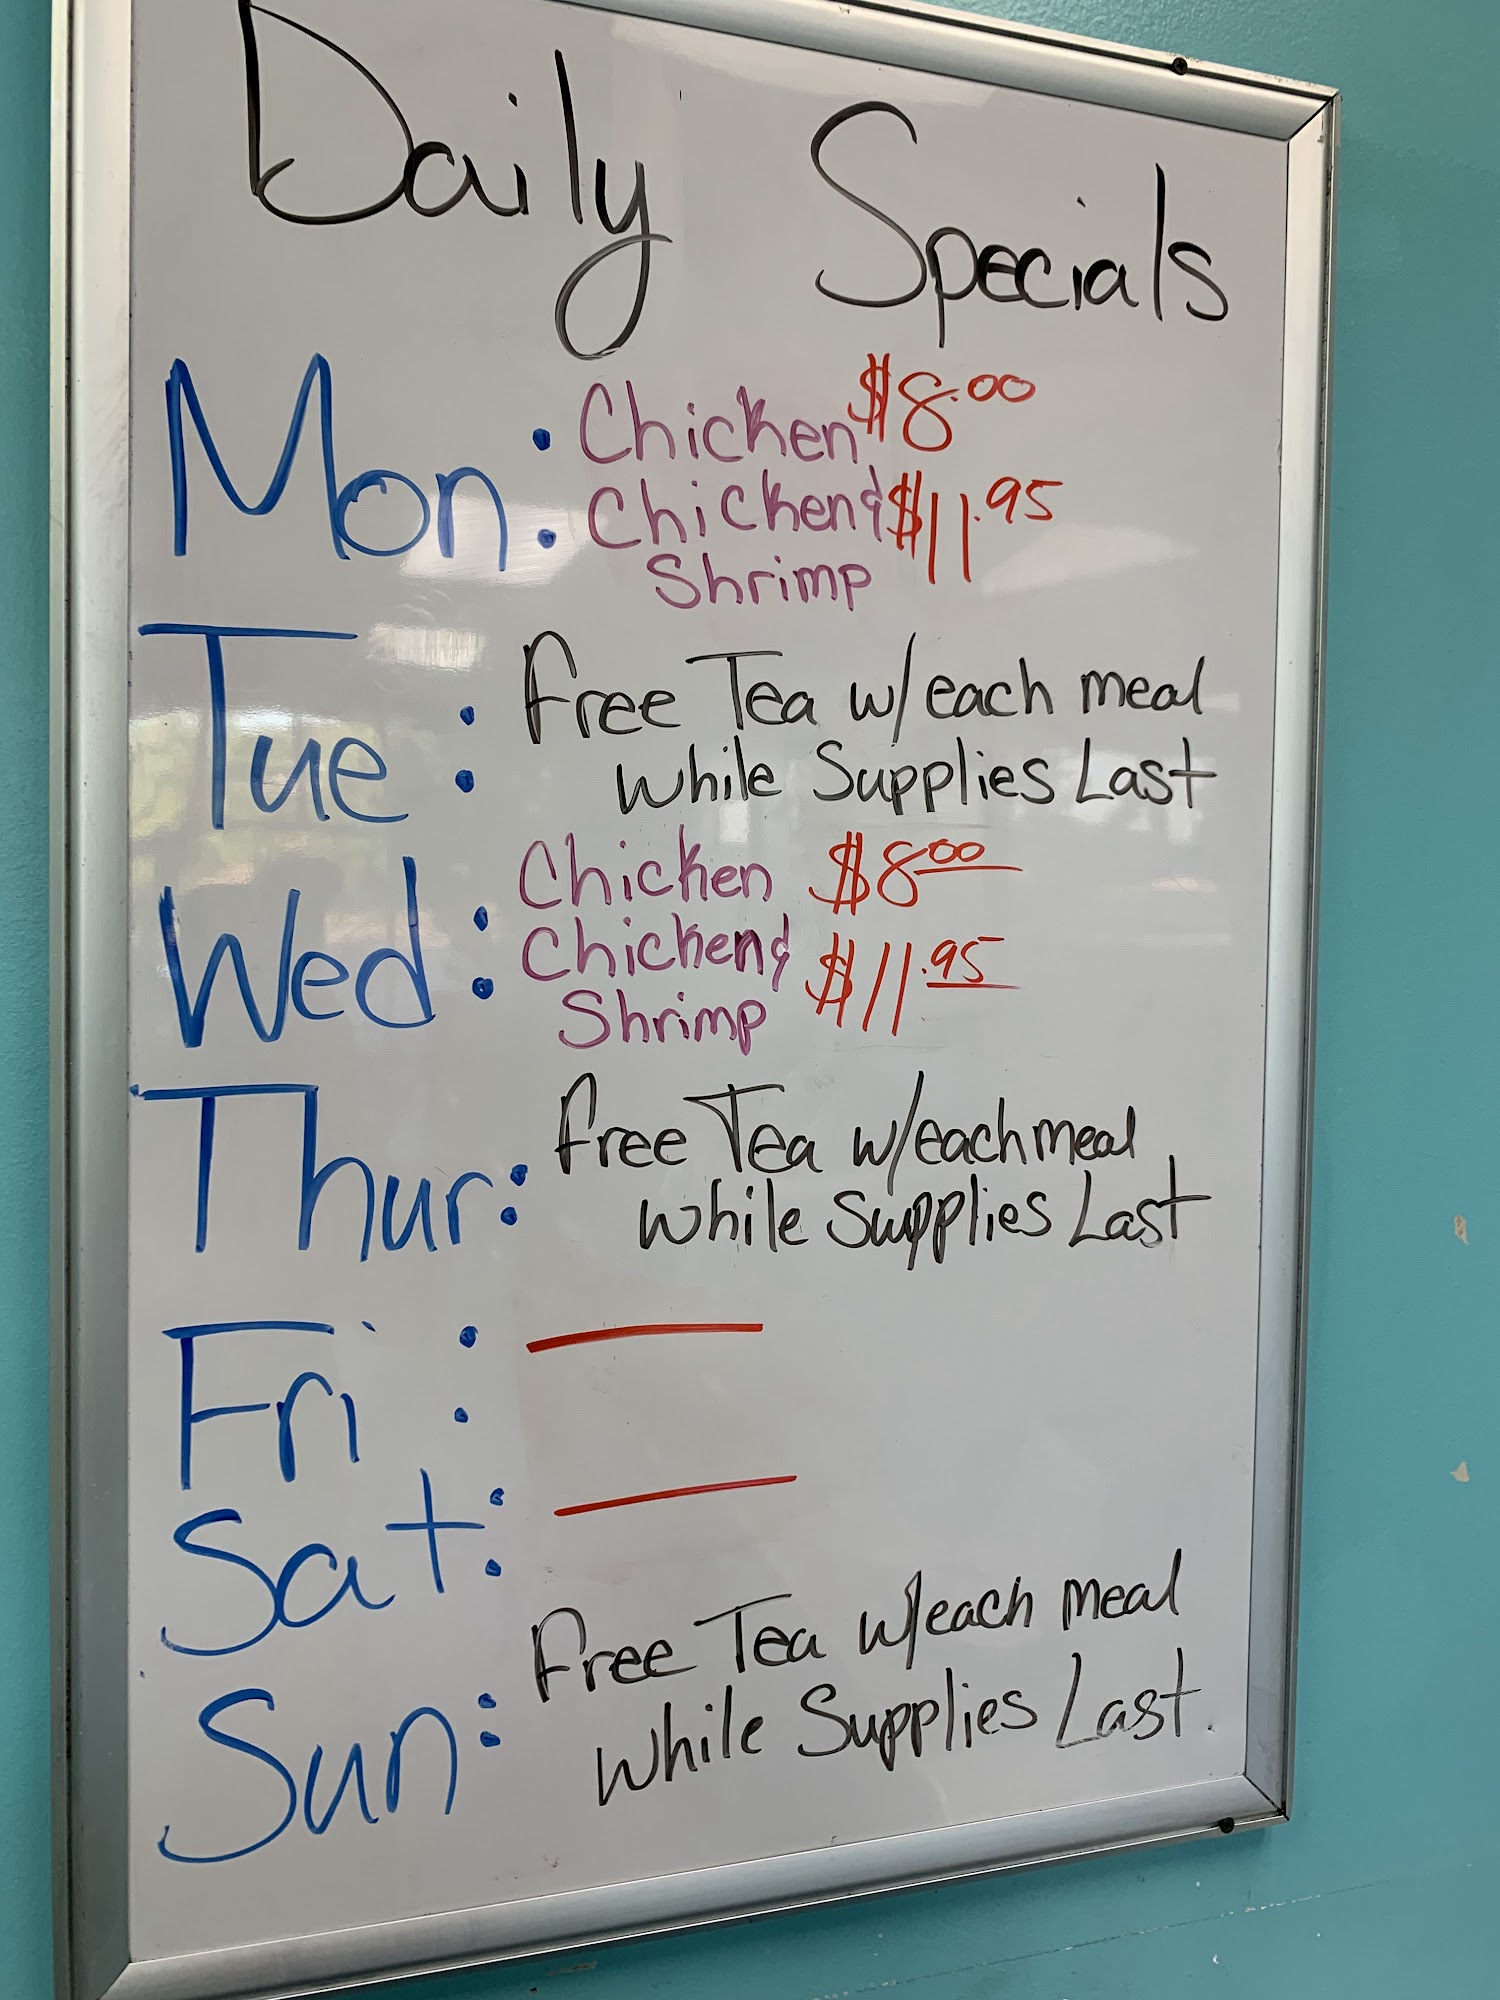 Daily Specials
Mon: Chicken $8.00
Chicken & $11.95
Shrimp
Tue: Free Tea w/each meal
while Supplies Last
Wed: Chicken $8.00
Chicken & $11.95
Shrimp
Thur: Free Tea w/each meal
while Supplies Last
Fri: —
Sat: —
Sun: Free Tea w/each meal
while Supplies Last.